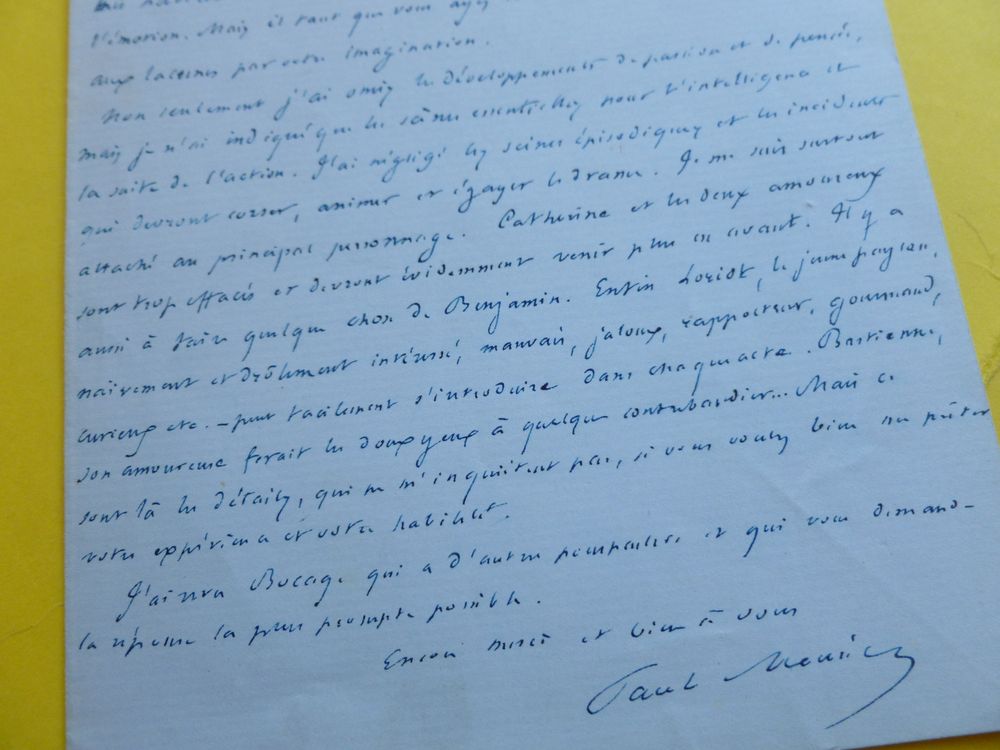 l'émotion. Mais il faut que vous
aux lacunes par votre imagination.
Non seulement j'ai omis les développements de passion et de pensée,
mais je n'ai indiqué que les scènes essentielles pour l'intelligence et
la suite de l'action. J'ai négligé les scènes épisodiques et les incidents
qui devront corser, animer et égayer le drame. Je me suis surtout
attaché au principal personnage. Catherine et les deux amoureux
sont trop effacés et devront évidemment venir plus en avant. Il y a
aussi à faire quelque chose de Benjamin. Enfin Loriot, le jeune paysan,
naïvement et drôlement intéressé, mauvais, jaloux, rapporteur, gourmand,
curieux etc. – peut facilement s'introduire dans chaque acte. Bastienne,
son amoureuse ferait les doux yeux à quelque contrebandier... Mais ce
sont là les détails, qui ne m'inquiètent pas, si vous voulez bien me prêter
votre expérience et votre habileté.
J'ai vu Bocage qui a d'autres pourparlers et qui vous demand-
la réponse la plus prompte possible.
Encore merci et bien à vous
Paul Meurice